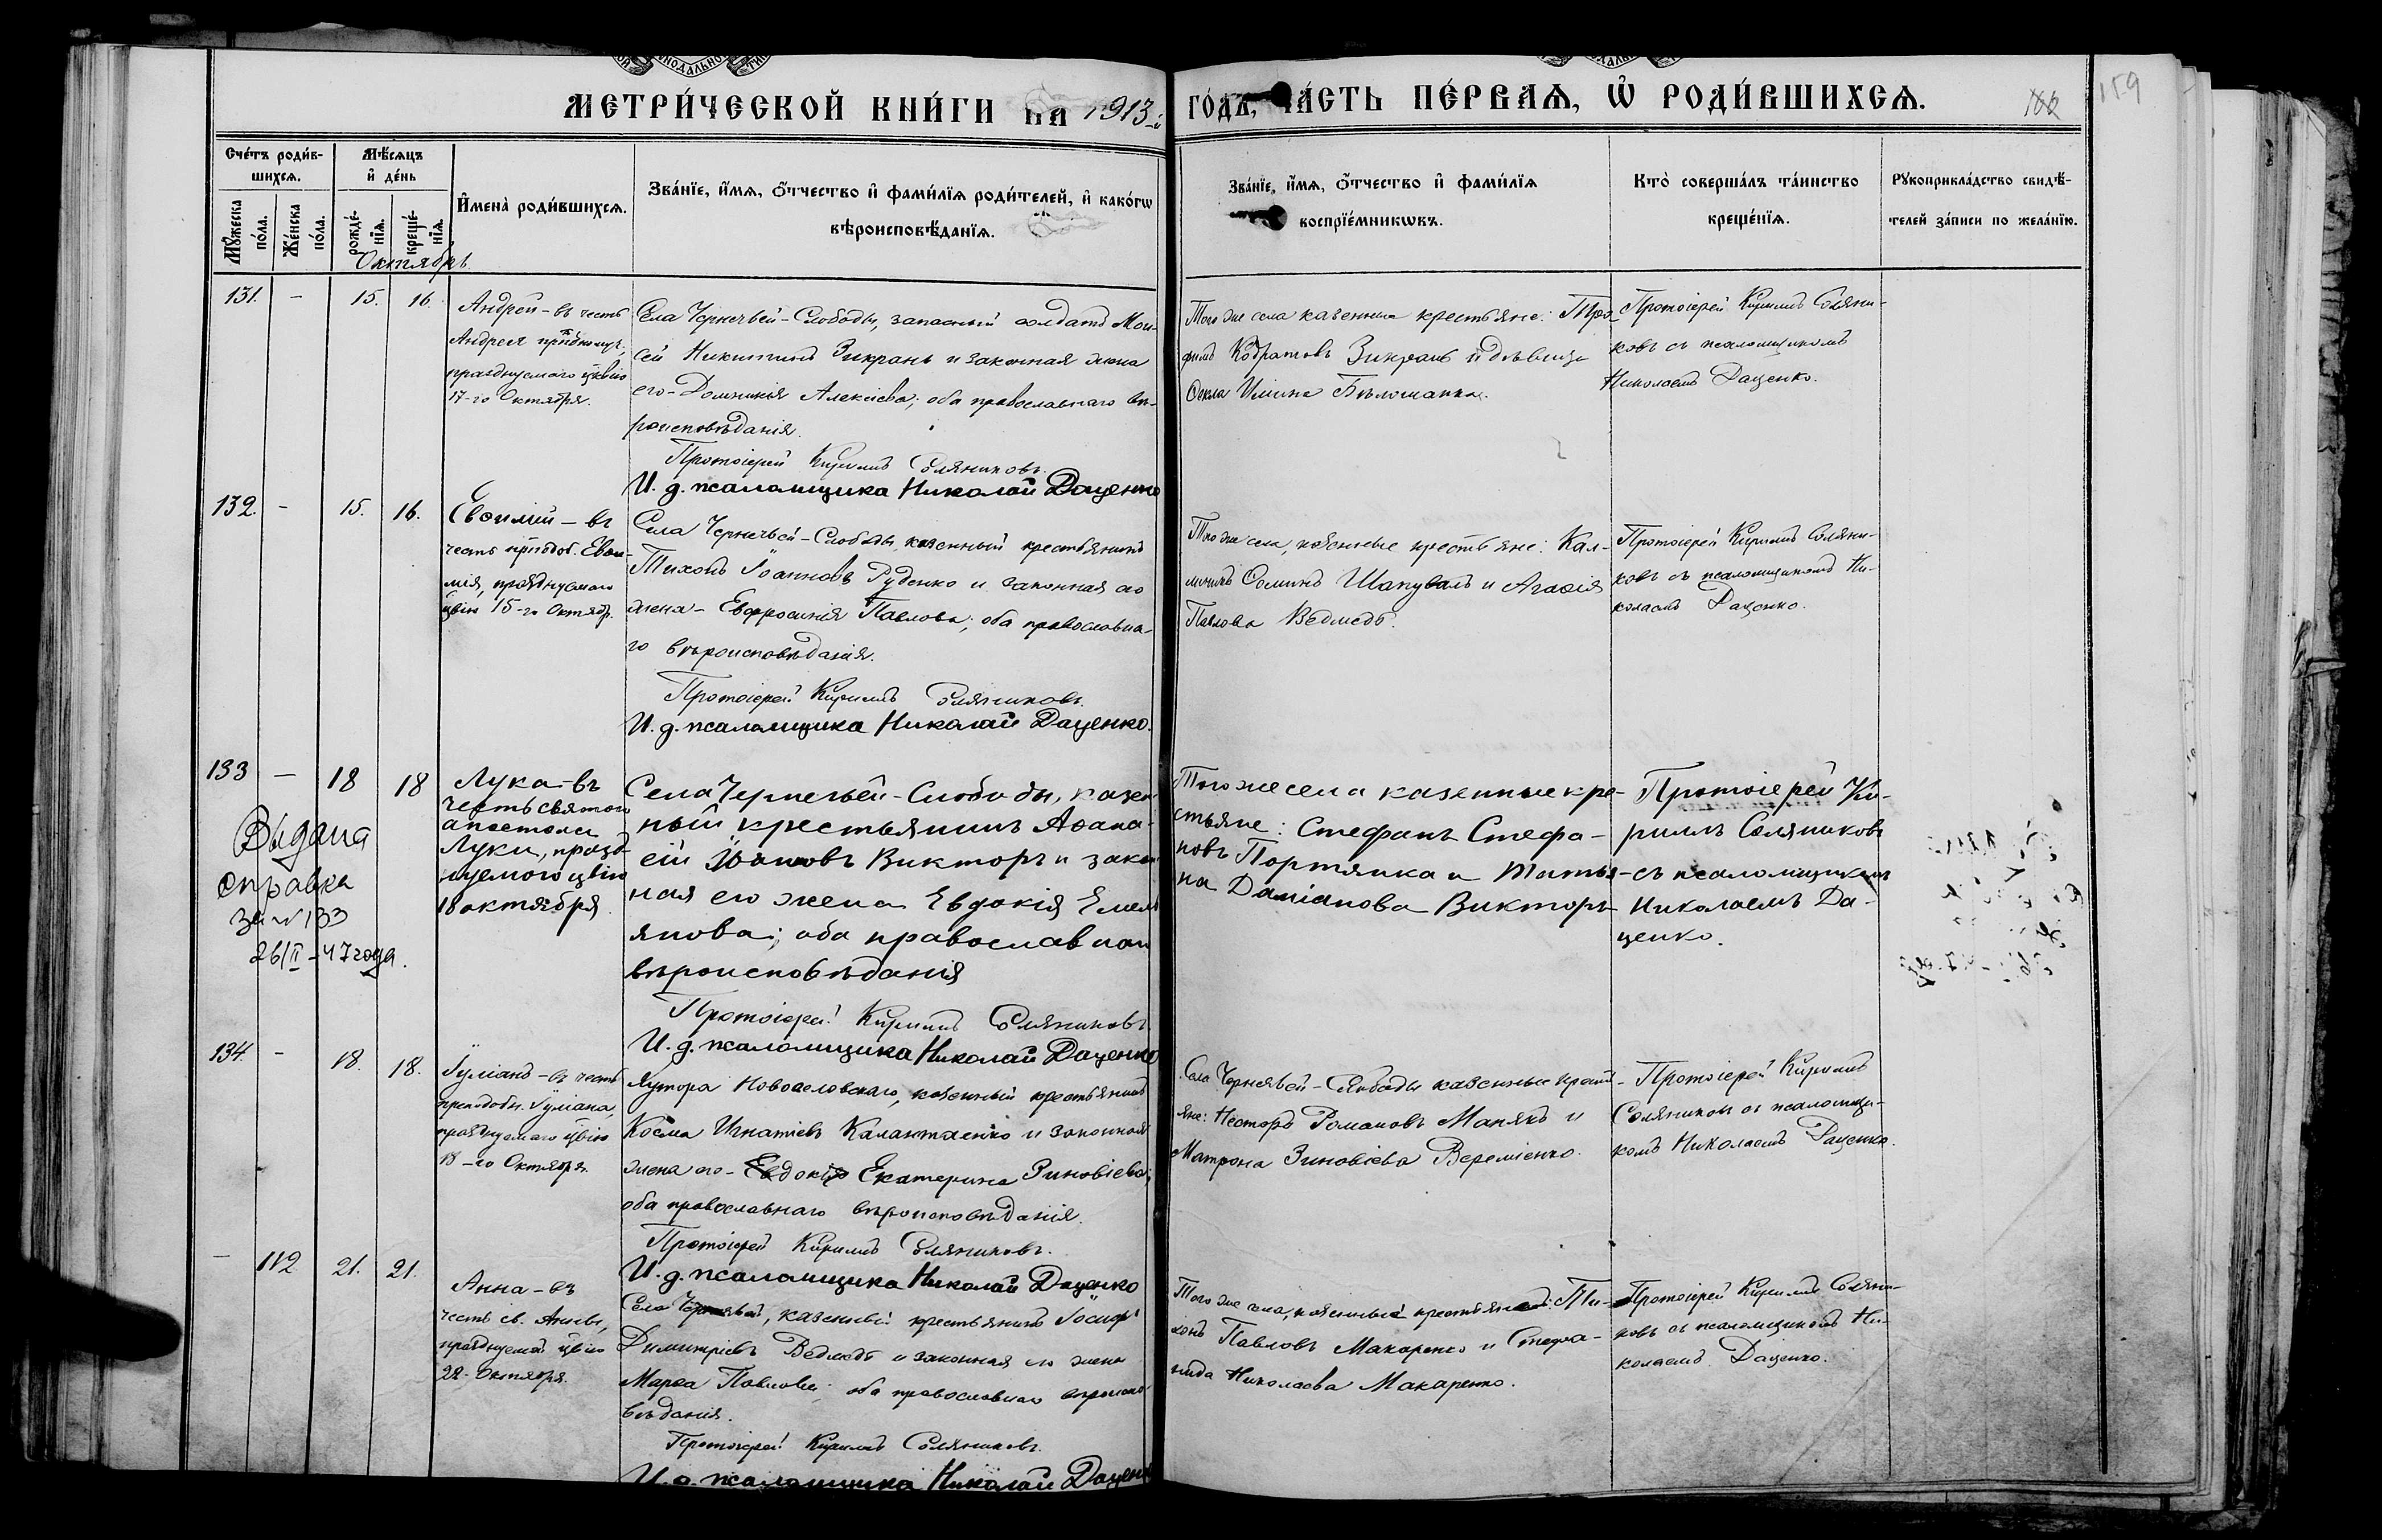 МЕТРИ́ЧЕСКОЙ КНИ́ГИ НА 1913-й ГО́ДЪ, ЧА́СТЬ ПЕ́РВАЯ, Ѡ҆ РОДИ́ВШИХСЯ.
159
Сче́тъ роди́в-
шихся.
Му́жеска
по́ла.
Же́нска
по́ла.
Мѣ́сяцъ
и҆ де́нь
рожде́-
нїя.
креще́-
нїя.
Октябрь
И҆мена̀ роди́вшихся.
Зва́нїе, и҆́мя, ѻ҆́тчество и҆ фами́лїя роди́телей, и҆ како́гѡ
вѣроисповѣ́данїя.
Зва́нїе, и҆́мя, ѻ҆́тчество и҆ фами́лїя
воспрїе́мникѡвъ.
Кто̀ соверша́лъ та́инство
креще́нїя.
Рукоприкла́дство свидѣ́-
телей за́писи по жела́нїю.
131. – 15. 16.
Андрей – въ честь
Андрея
празднуемаго
17-го Октября.
Села Чернечьей-Слободы, запасный солдатъ Мои-
сей Никитинъ Зикрань и законная жена
его – Домникія Алексіева; оба православнаго вѣ-
роисповѣданія.
Протоіерей Кириллъ Соляниковъ.
И. д. псаломщика Николай Даценко
Того же села казенные крестьяне: Тро-
фимъ Зикрань и дѣвица
Ѳекла Ильина
Протоіерей Кириллъ Соляни-
ковъ съ псаломщикомъ
Николаемъ Даценко.
132. – 15. 16.
Евѳимій – въ
честь препод. Евѳи-
мія, празднуемаго
15-го Октябр.
Села Чернечьей-Слободы, казенный крестьянинъ
Тихонъ Іоанновъ Руденко и законная его
жена – Евфросинія Павлова; оба православна-
го вѣроисповѣданія.
Протоіерей Кириллъ Соляниковъ.
И. д. псаломщика Николай Даценко.
Того же села, казенные крестьяне: Кал-
линикъ Ѳоминъ Шапувалъ и Агаѳія
Павлова Ведмедь.
Протоіерей Кириллъ Соляни-
ковъ съ псаломщикомъ Ни-
колаемъ Даценко.
133 – 18 18
Лука – въ
честь святого
апостола
Луки, празд-
нуемого цвію
18 октября.
Выдана
справка
за № 133
26/II – 47 года.
Села Чернечьей-Слободы, казен-
ный крестьянинъ Аѳана-
сій Іоановъ Викторъ и закон
ная его жена Евдокія Емель
янова; оба православнаго
вѣроисповѣданія
Протоіерей Кириллъ Соляниковъ
И. д. псаломщика Николай Даценко
Того же села казенные кре-
стьяне: Стефанъ Стефа-
новъ Портянка и Татья-
на Даміанова Викторъ
Протоіерей Ки-
риллъ Соляниковъ
съ псаломщикомъ
Николаемъ Да-
ценко.
134. – 18. 18.
Іуліанъ – въ честь
преподобн. Іуліана,
празднуемаго цвію
18-го Октября.
Хутора Новоселовскаго, казенный крестьянинъ
Косма Игнатіевъ и законная
жена его – Евдокія Екатерина Зиновіева;
оба православнаго вѣроисповѣданія.
Протоіерей Кириллъ Соляниковъ.
И. д. псаломщика Николай Даценко
Села Чернечьей-Слободы казенные крестья-
яне: Несторъ Романовъ Манякъ и
Матрона Зиновіева Вереміенко.
Протоіерей Кириллъ
Соляниковъ съ псаломщи-
комъ Николаемъ Даценко.
– 112 21. 21.
Анна – въ
честь св. Анны,
празднуемой цвію
22 Октября.
Села казенный крестьянинъ Іосифъ
Димитріевъ Ведмедь и законная его жена
Марѳа Павлова; оба православнаго вѣроиспо-
вѣданія.
Протоіерей Кириллъ Соляниковъ.
И. д. псаломщика Николай Даценко
Того же села, казенные крестьяне: Ти-
хонъ Павловъ Макаренко и Стефа-
нида Николаева Макаренко.
Протоіерей Кириллъ Соляни-
ковъ съ псаломщикомъ Ни-
колаемъ Даценко.